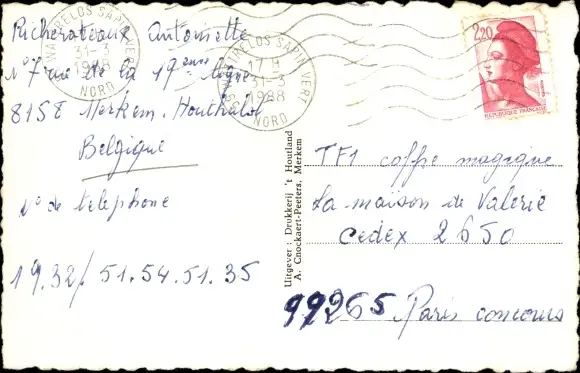 Antoinette
N° 7 rue de la 19eme ligne
8158 Merkem. Houthulst
Belgique
N° de telephone
19.32/51.54.51.35
31-3
1988
NORD
SAPIN VERT
17 H
31-3
1988
NORD
2,20
REPUBLIQUE FRANÇAISE
Uitgever : Drukkerij 't Houtland
A. Cnockaert-Peeters, Merkem
TF1 coffre magique
La maison de Valerie
Cedex 2650
99265 Paris concours